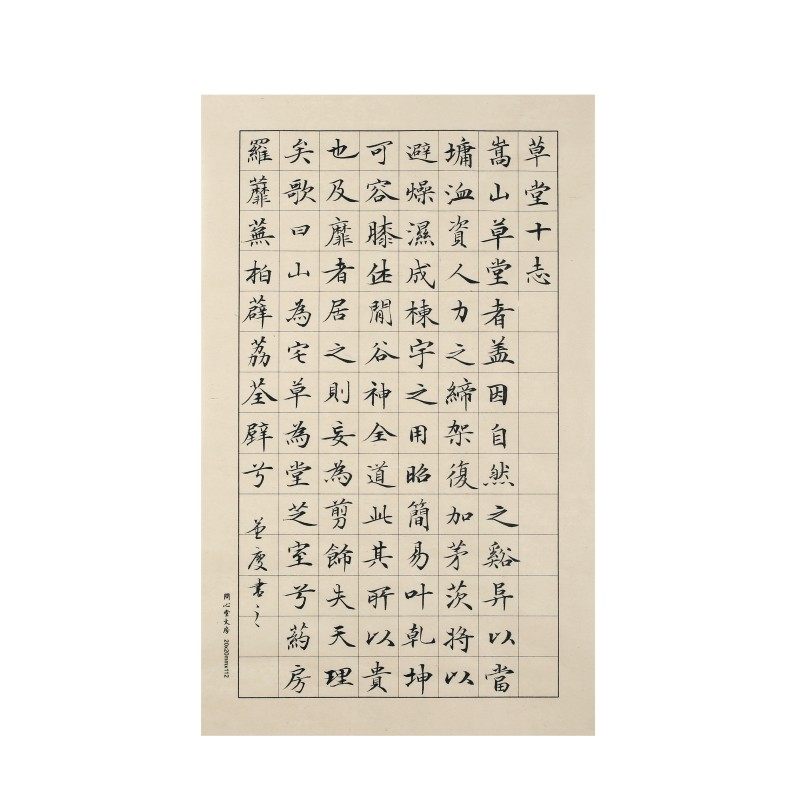 草堂十志
嵩山草堂者盖因自然之谿异以當
墉洫資人力之締架復加茅茨將以
避燥濕成棟宇之用昭簡易叶乾坤
可容膝休閒谷神全道此其所以貴
也及靡者居之則妄為剪飾失天理
矣歌曰山為宅草為堂芝室兮葯房
羅蘼蕪柏薜荔荃壁兮 度書之
問心堂文房 20x20mmx112